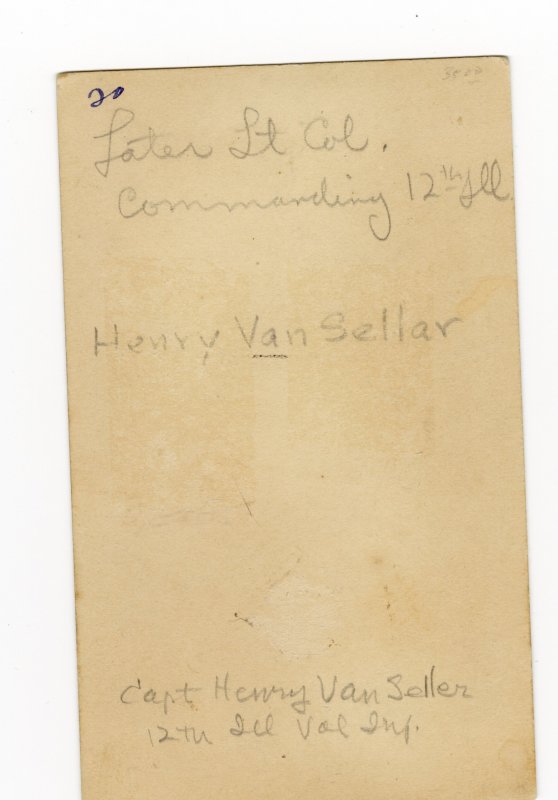 20
3500
Later Lt Col.
Commanding 12th Ill.
Henry Van Sellar
Capt Henry Van Seller
12th Ill Vol Inf.